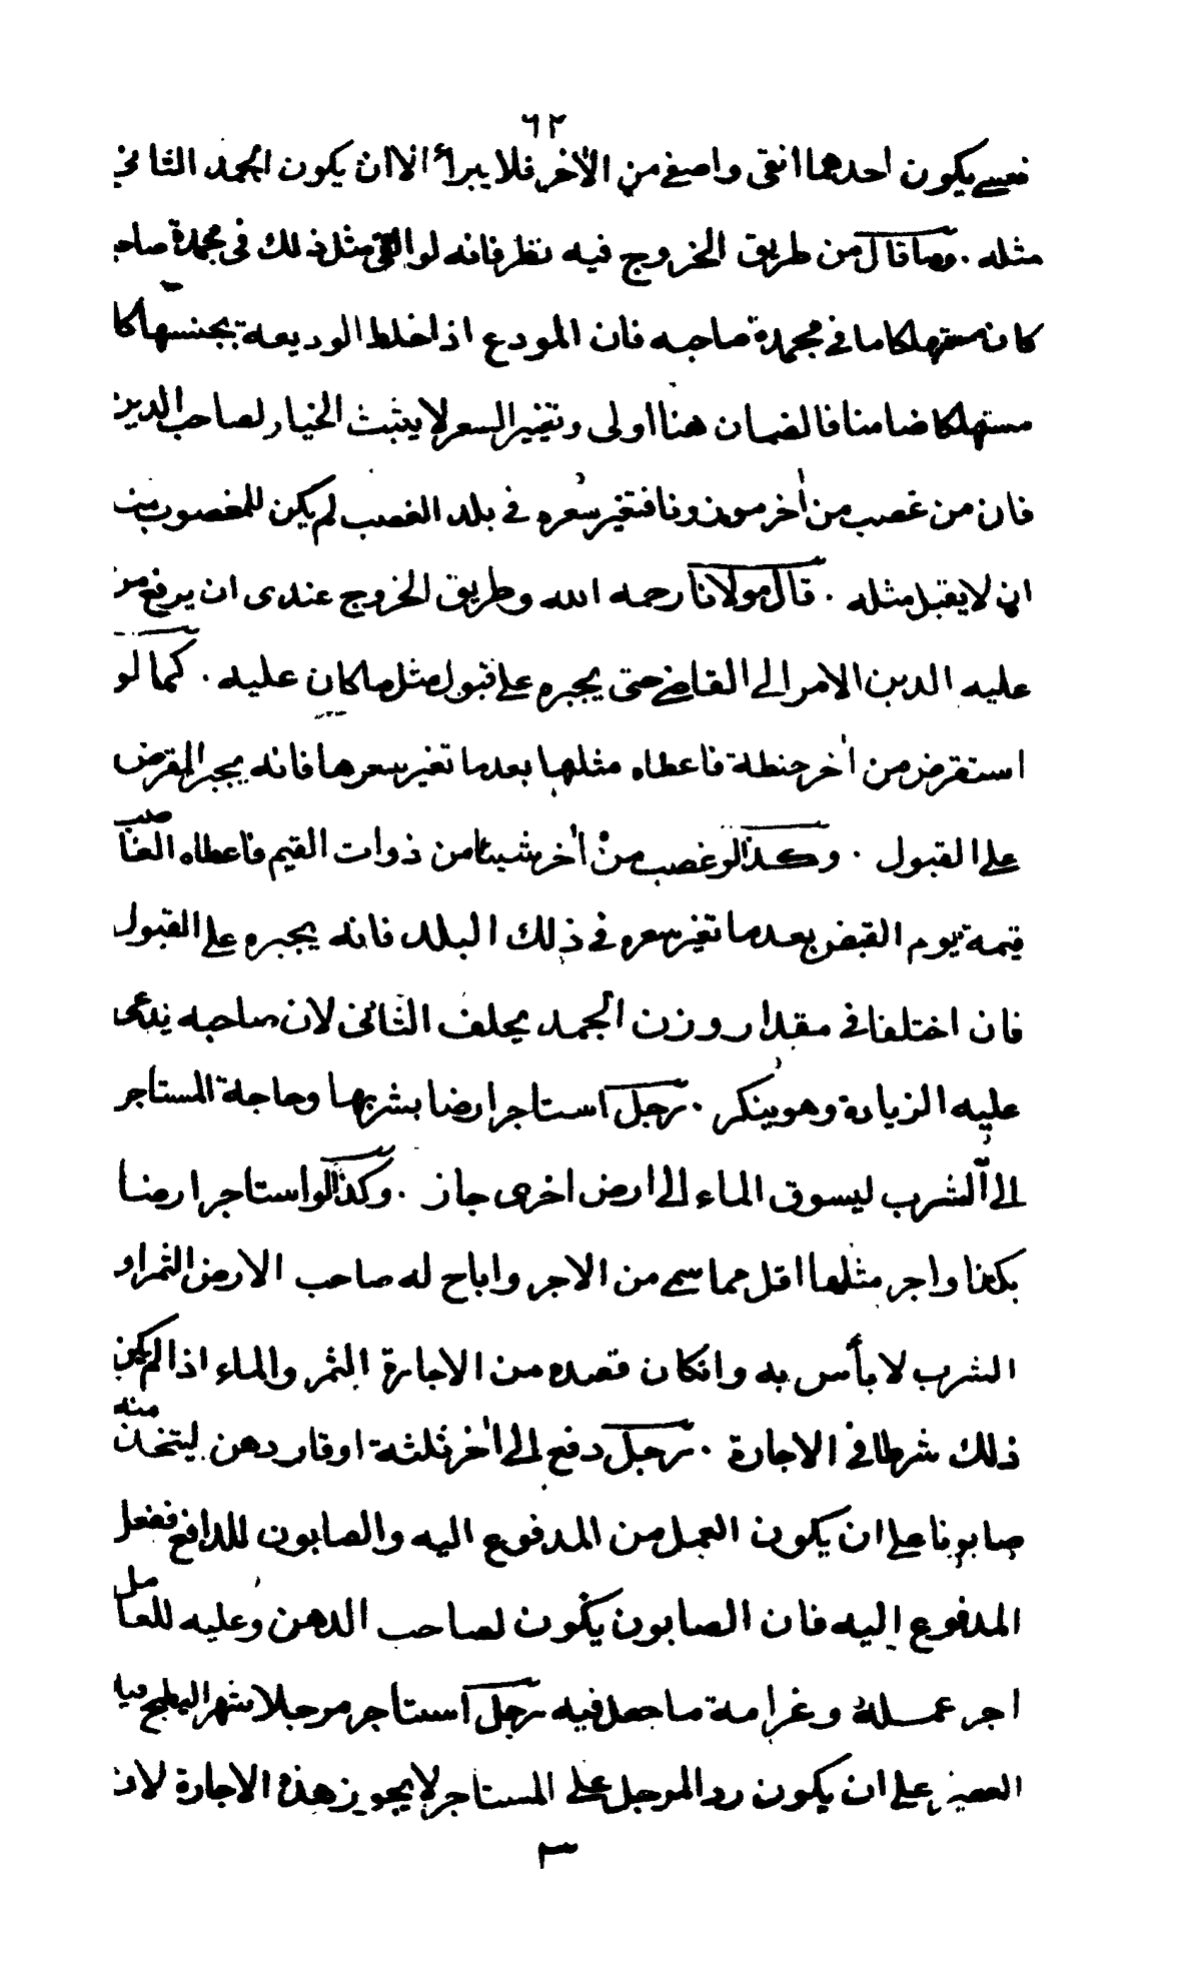 ٦٢
فعسى يكون احدهما انقى واصفى من الآخر فلا يبرأ الا ان يكون الجمد الثانى
مثله . وما قال من طريق الخروج فيه نظر فانه لو القى مثل ذلك فى مجمدة صاحبه
كان مستهلكا ما فى مجمدة صاحبه فان المودع اذا خلط الوديعة بجنسها كان
مستهلكا ضامنا فالضمان هنا اولى وتغير السعر لا يثبت الخيار لصاحب الدين
فان من غصب من آخر موزونا فتغير سعره فى بلد الغصب لم يكن للمغصوب منه
ان لا يقبل مثله . قال مولانا رحمه الله وطريق الخروج عندى ان يرفع من
عليه الدين الامر الى القاضى حتى يجبره على قبول مثل ما كان عليه . كما لو
استقرض من آخر حنطة فاعطاه مثلها بعدما تغير سعرها فانه يجبر المقرض
على القبول . وكذا لو غصب من آخر شيئا من ذوات القيم فاعطاه الغاصب
قيمة يوم القبض بعدما تغير سعره فى ذلك البلد فانه يجبره على القبول
فان اختلفا فى مقدار وزن الجمد يحلف الثانى لان صاحبه يدعى
عليه الزيادة وهو ينكر . رجل استاجر ارضا بشربها وحاجة المستاجر
الى الشرب ليسوق الماء الى ارض اخرى جاز . وكذا لو استاجر ارضا
بكذا واجر مثلها اقل مما سمى من الاجر واباح له صاحب الارض الثمر او
الشرب لا بأس به وان كان قصده من الاجارة الثمر والماء اذا لم يكن
ذلك شرطا فى الاجارة . رجل دفع الى آخر ثلثة اوقار دهن ليتخذ منه
صابونا على ان يكون العمل من المدفوع اليه والصابون للدافع ففعل
المدفوع اليه فان الصابون يكون لصاحب الدهن وعليه للعامل
اجر عمله وغرامة ما جعل فيه رجل استاجر مرجلا شهرا ليطبخ فيه
العصير على ان يكون رد المرجل على المستاجر لا يجوز هذه الاجارة لان